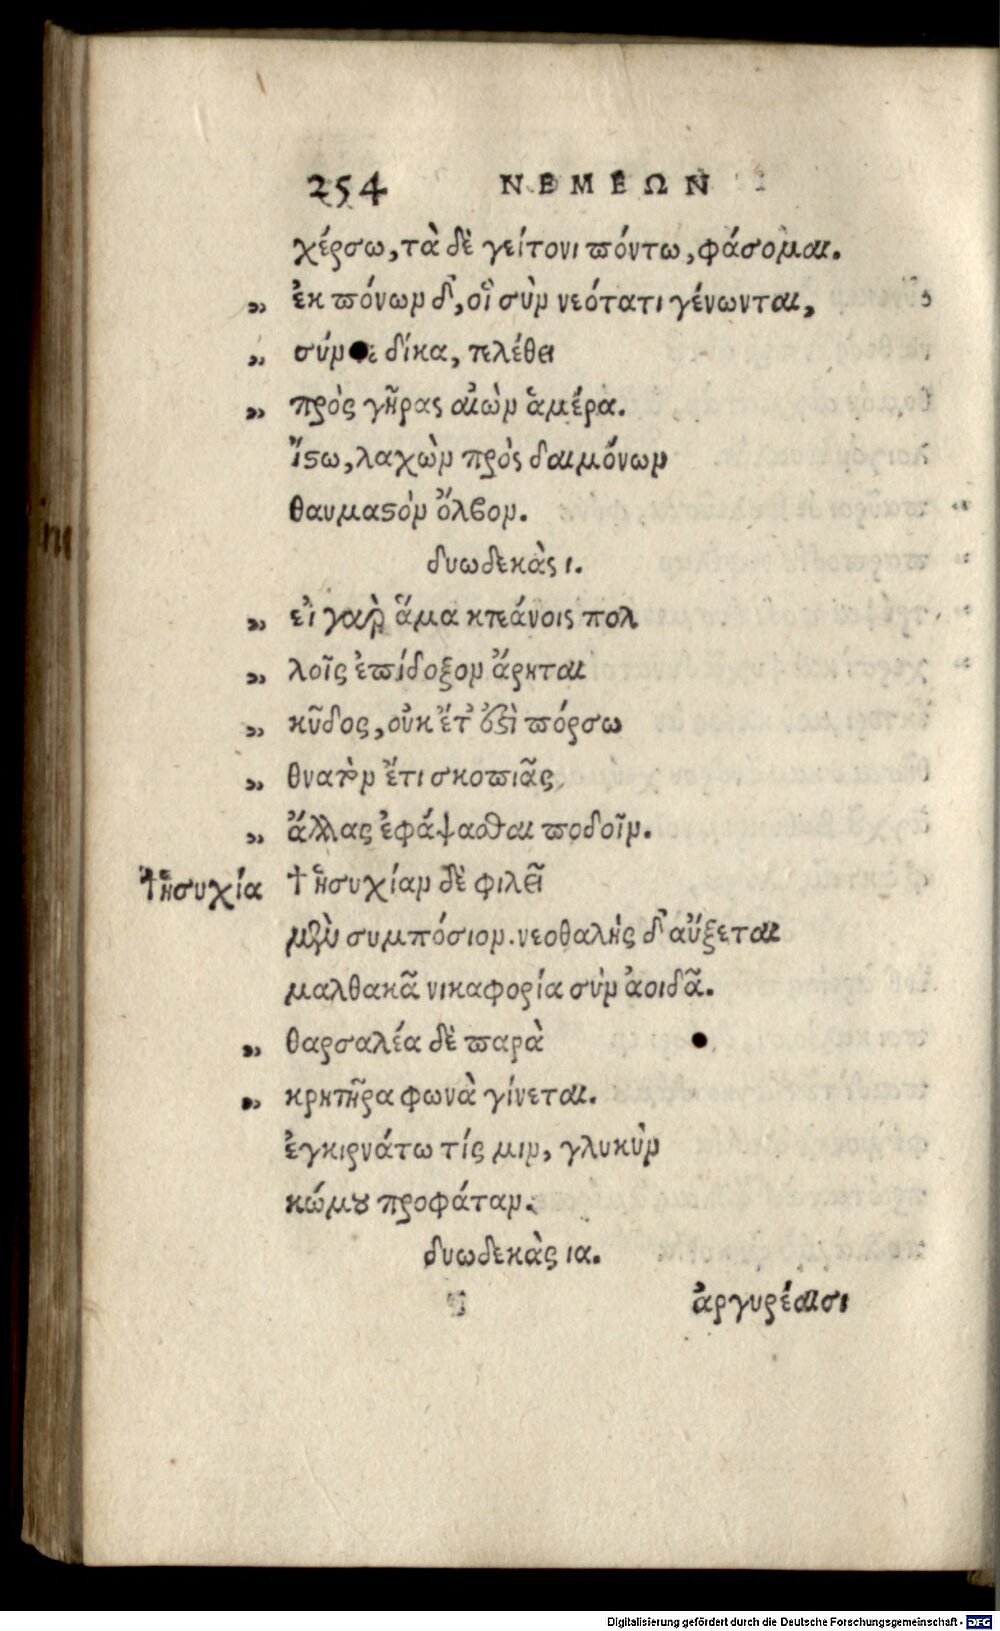 254 ΝΕΜΕΩΝ
χέρσω, τὰ δὲ γείτονι πόντω, φάσομαι.
„ ἐκ πόνων δ', οἳ σὺν νεότατι γένωνται,
„ σύν δίκα, τελέθει
„ πρὸς γῆρας αἰὼν ἁμέρα.
ἴστω, λαχὼν πρὸς δαιμόνων
θαυμαστὸν ὄλβον.
δυωδεκὰς ι.
„ εἰ γαρ ἅμα κτεάνοις πολ
„ λοῖς ἐπίδοξον ἄρηται
„ κῦδος, οὐκ ἔτ' ἐστὶ πόρσω
„ θνατὸν ἔτι σκοπιᾶς
„ ἄλλας ἐφάψασθαι ποδοῖν.
†ἡσυχία † ἡσυχίαν δὲ φιλεῖ
μὲν συμπόσιον. νεοθαλὴς δ' αὔξεται
μαλθακᾶ νικαφορία σὺν ἀοιδᾶ.
„ θαρσαλέα δὲ παρὰ
„ κρητῆρα φωνὰ γίνεται.
ἐγκιρνάτω τίς μιν, γλυκὺν
κώμου προφάταν.
δυωδεκὰς ια.
ἀργυρέαισι
Digitalisierung gefördert durch die Deutsche Forschungsgemeinschaft - DFG